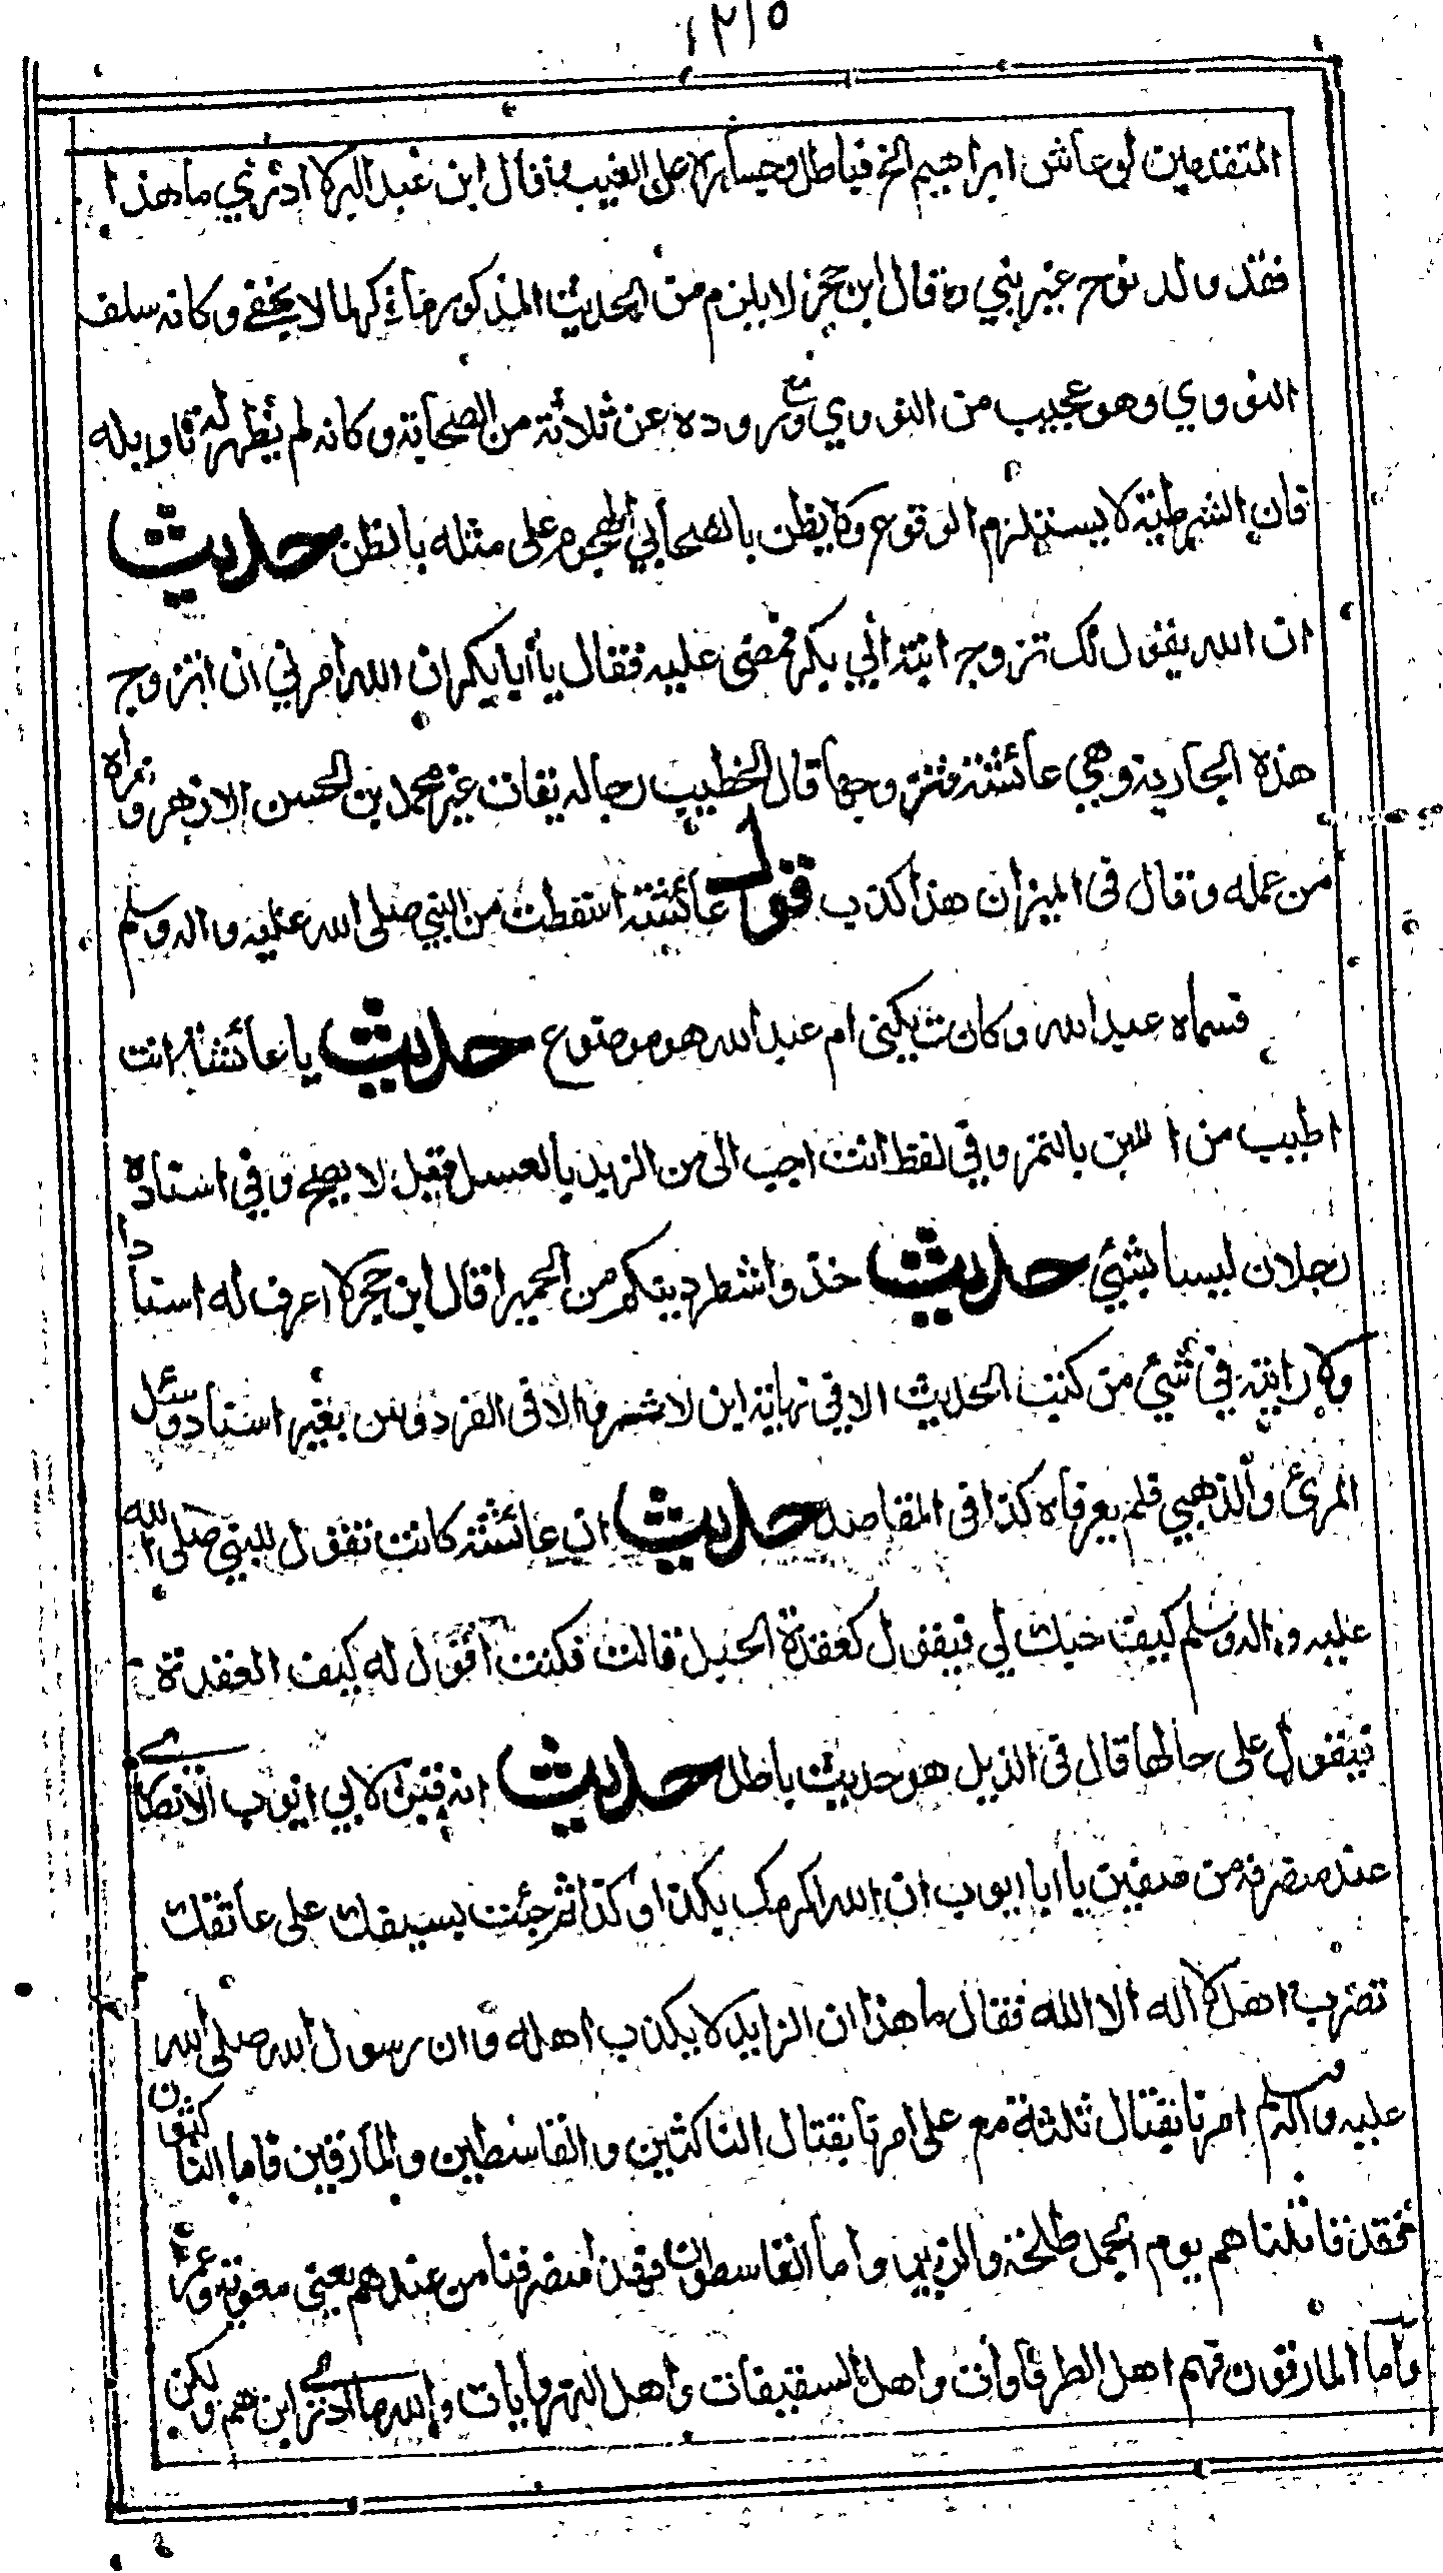 ١٢١٥
المتقدمين لو عاش ابراهيم الخ فباطل وجسارة على الغيب وقال ابن عبد البر لا ادري ما هذا
فقد ولد نوح غير نبي ه قال ابن حجر لا يلزم من الحديث المذكور ما ذكر لما لا يخفى وكانه سلف
النووي وهو عجيب من النووي مع وروده عن ثلاثة من الصحابة وكانه لم يظهر له تاويله
فان الشرطية لا يستلزم الوقوع ولا يظن بالصحابي الهجوم على مثله بالظن حديث
ان الله يقول لك تزوج ابنة ابي بكر فمضى عليه فقال يا أبا بكر ان الله امرني ان اتزوج
هذه الجارية وهي عائشة فتزوجها قال الخطيب رجاله ثقات غير محمد بن الحسن الازهر ونراه
من عمله وقال فى الميزان هذا كذب قول عائشة اسقطت من النبي صلى الله عليه واله وسلم
فسماه عبد الله وكانت يكنى ام عبد الله هو موضوع حديث يا عائشة انت
اطيب من اللبن بالتمر وفي لفظ انت احب الى من الزبد بالعسل فقيل لا يصح وفي اسناده
رجلان ليسا بشئ حديث خذوا شطر دينكم من الحميرا قال ابن حجر لا اعرف له اسنادا
ولا رايته في شئ من كتب الحديث الا في نهاية ابن الاثير والا فى الفردوس بغير اسناد وسئل
المزي والذهبي فلم يعرفاه كذا فى المقاصد حديث ان عائشة كانت تقول للنبي صلى الله
عليه واله وسلم كيف حبك لي فيقول كعقدة الحبل قالت فكنت اقول له كيف العقدة
فيقول على حالها قال فى الذيل هو حديث باطل حديث انه قيل لابي ايوب الانصاري
عند منصرفه من صفين يا أبا ايوب ان الله اكرمك بكذا وكذا ثم جئت بسيفك على عاتقك
تضرب اهل لا اله الا الله فقال ما هذا ان الرايد لا يكذب اهله وان رسول الله صلى الله
عليه واله وسلم امرنا بقتال ثلثة مع على امرنا بقتال الناكثين والقاسطين والمارقين فاما الناكثون
فقد قاتلناهم يوم الجمل طلحة والزبير واما القاسطون فهذا منصرفنا من عندهم يعني معوية وعمرو
واما المارقون فهم اهل الطرفاوات واهل السقيفات واهل النهروايات والله ما ادري اين هم ولكن